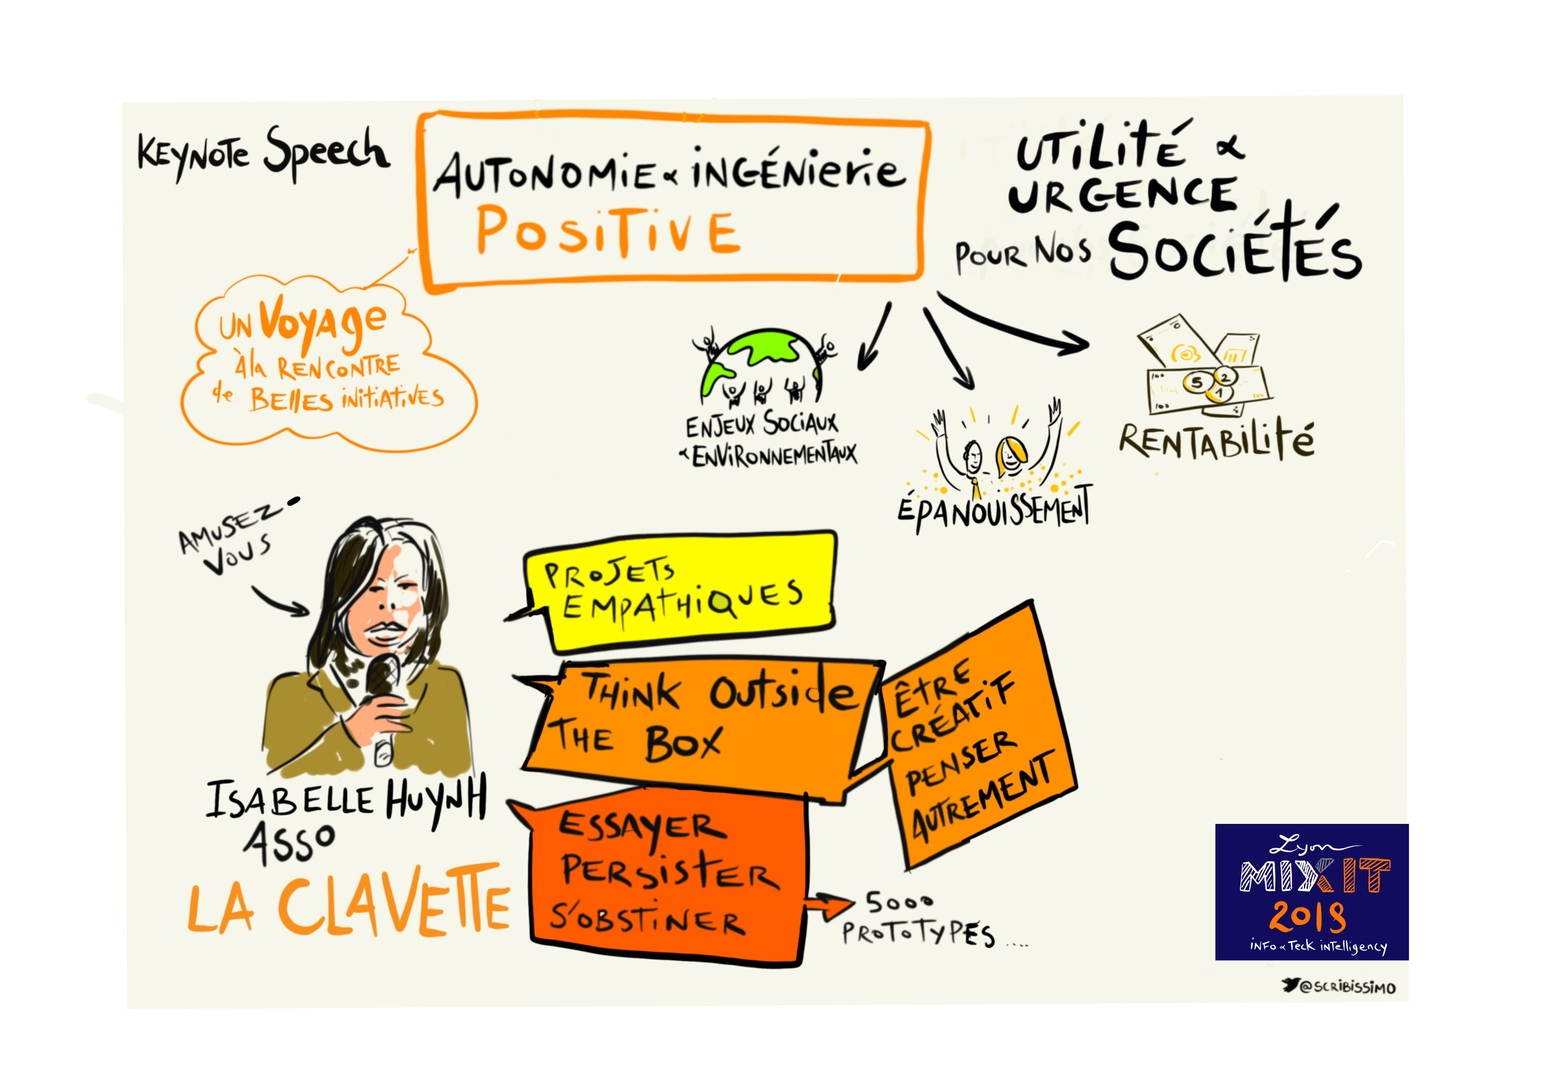 KEYNOTE Speech
AUTONOMIE & INGÉNIERIE
POSITIVE
UTILITÉ &
URGENCE
POUR NOS SOCIÉTÉS
UN VOYAGE
à la RENCONTRE
de BELLES INITIATIVES
ENJEUX SOCIAUX
& ENVIRONNEMENTAUX
ÉPANOUISSEMENT
5 2
1
RENTABILITÉ
AMUSEZ-
VOUS
PROJETS
EMPATHIQUES
THINK Outside
THE BOX
ÊTRE
CRÉATIF
PENSER
AUTREMENT
ESSAYER
PERSISTER
S'OBSTINER
5000
PROTOTYPES ....
ISABELLE HUYNH
ASSO
LA CLAVETTE
Lyon
MIXIT
2018
INFO & Teck intelligency
@SCRIBISSIMO